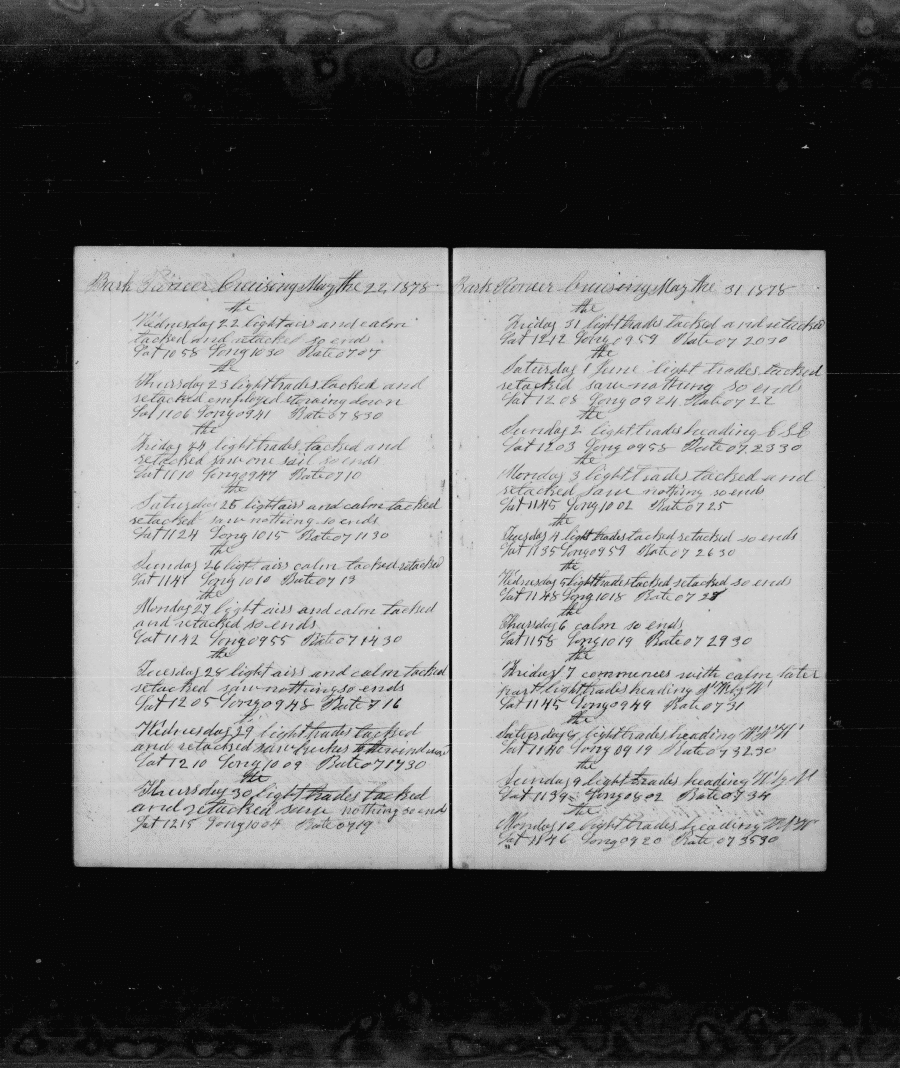 Bark Pioneer Cruising May the 22 1878
the
Wednesday 22 light airs and calm
tacked and retacked so ends
Lat 10 58 Long 10 30 Rate 07 07
the
Thursday 23 light trades tacked and
retacked employed stowing down
Lat 11 06 Long 09 41 Rate 07 8 30
the
Friday 24 light trades tacked and
retacked saw one sail so ends
Lat 11 10 Long 09 47 Rate 07 10
the
Saturday 25 light airs and calm tacked
retacked saw nothing so ends
Lat 11 24 Long 10 15 Rate 07 11 30
the
Sunday 26 light airs calm tacked retacked
Lat 11 41 Long 10 10 Rate 07 13
the
Monday 27 light airs and calm tacked
and retacked so ends
Lat 11 42 Long 09 55 Rate 07 14 30
the
Tuesday 28 light airs and calm tacked
retacked saw nothing so ends
Lat 12 05 Long 09 48 Rate 7 16
Wednesday 29 light trades tacked
and retacked saw
Lat 12 10 Long 10 09 Rate 07 17 30
the
Thursday 30 light trades tacked
and retacked saw nothing so ends
Lat 12 15 Long 10 04 Rate 07 19
Bark Pioneer Cruising May the 31 1878
the
Friday 31 light trades tacked and retacked
Lat 12 12 Long 09 59 Rate 07 20 30
the
Saturday 1 June light trades tacked
retacked saw nothing so ends
Lat 12 08 Long 09 24 Rate 07 22
the
Sunday 2 light trades heading ESE
Lat 12 03 Long 09 58 Rate 07 23 30
the
Monday 3 light trades tacked and
retacked saw nothing so ends
Lat 11 45 Long 10 02 Rate 07 25
the
Tuesday 4 light trades tacked retacked so ends
Lat 11 35 Long 09 59 Rate 07 26 30
the
Wednesday 5 light trades tacked retacked so ends
Lat 11 48 Long 10 18 Rate 07 28
the
Thursday 6 calm so ends
Lat 11 58 Long 10 19 Rate 07 29 30
the
Friday 7 commences with calm later
part light trades heading
Lat 11 45 Long 09 49 Rate 07 31
the
Saturday 8 light trades heading
Lat 11 40 Long 09 19 Rate 07 32 30
the
Sunday 9 light trades heading
Lat 11 39 Long 08 02 Rate 07 34
the
Monday 10 light trades heading
Lat 11 46 Long 09 20 Rate 07 35 30